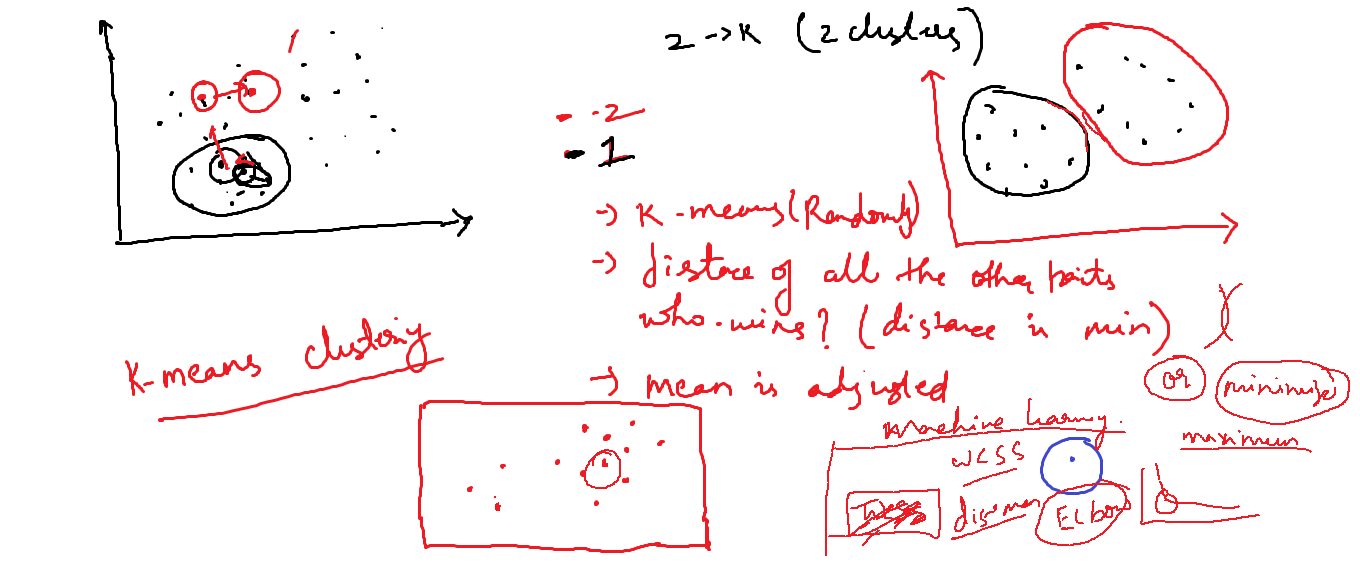 2 → K (2 clusters)
- - 2
- 1
→ K-means (Randomly)
→ distace of all the other points
who wins? (distance is min)
K-means clustering
→ mean is adjusted
or minimizes
maximum
Machine learning.
WCSS
Elbow